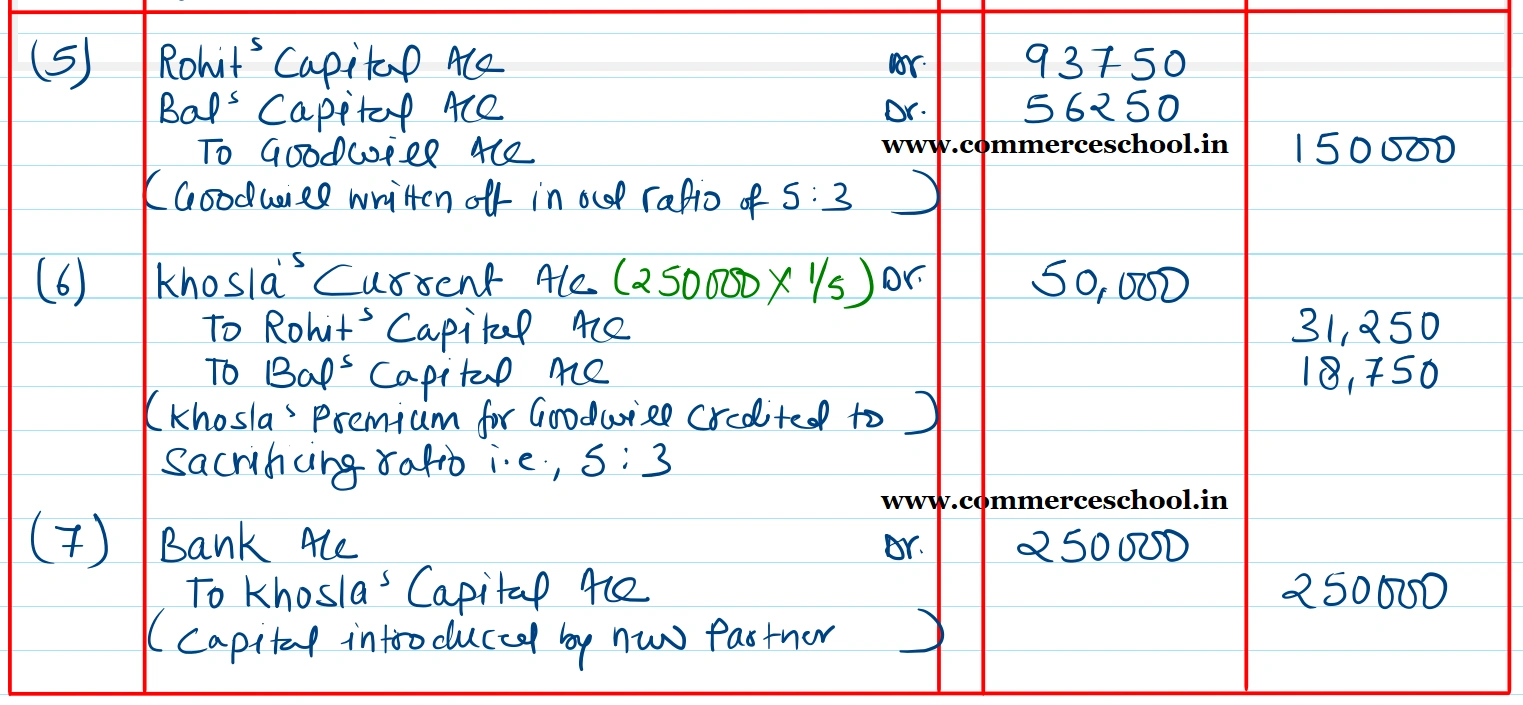 (5) Rohit's Capital A/c Dr. 93750
Bal's Capital A/c Dr. 56250
To Goodwill A/c www.commerceschool.in 150000
(Goodwill written off in old ratio of 5:3)
(6) Khosla's Current A/c (250000 X 1/5) Dr. 50,000
To Rohit's Capital A/c 31,250
To Bal's Capital A/c 18,750
(Khosla's Premium for Goodwill credited to)
sacrificing ratio i.e., 5:3
www.commerceschool.in
(7) Bank A/c Dr. 250000
To Khosla's Capital A/c 250000
(Capital introduced by new Partner)